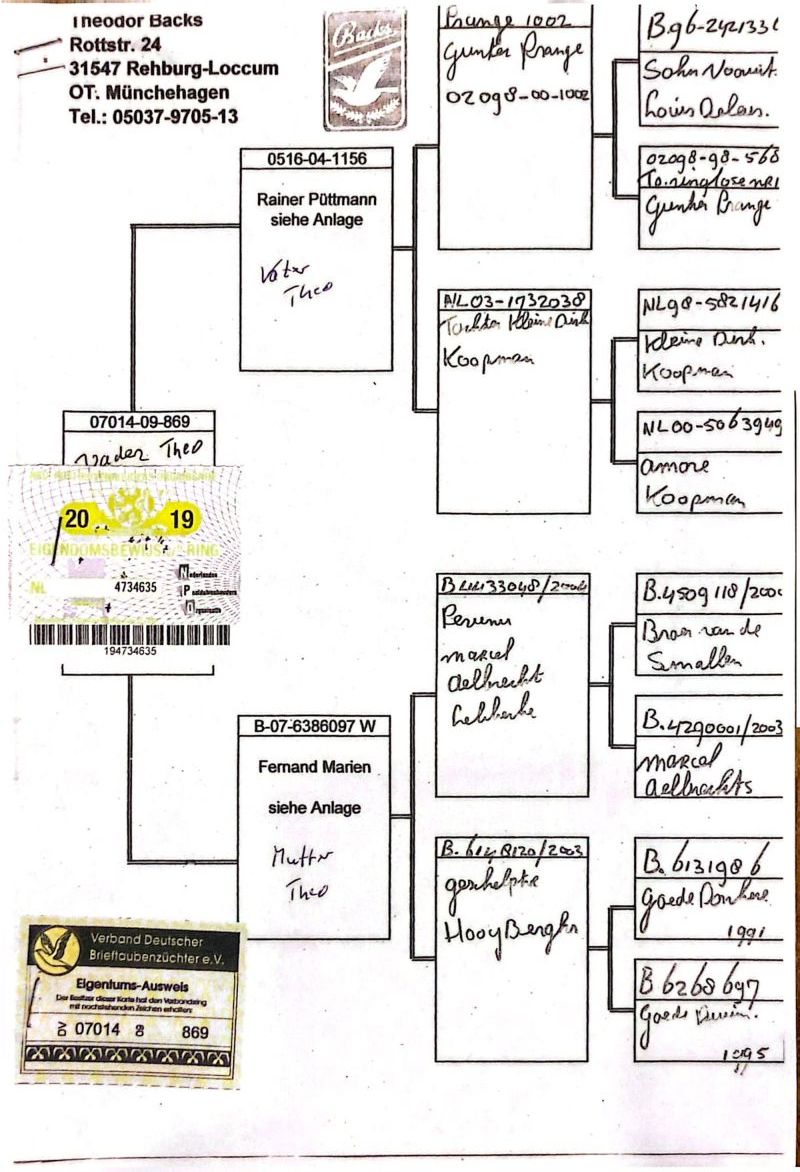 Theodor Backs
Rottstr. 24
31547 Rehburg-Loccum
OT. Münchehagen
Tel.: 05037-9705-13
Backs
07014-09-869
Vader Theo
20 19
EIGENDOMSBEWIJS RING
NL 4734635
Nederlandse
Postduivenhouders
Organisatie
194734635
0516-04-1156
Rainer Püttmann
siehe Anlage
Vater
Theo
B-07-6386097 W
Fernand Marien
siehe Anlage
Mutter
Theo
Prange 1002
Gunter Prange
02098-00-1002
NL03-1732038
Tochter Kleine Dirk
Koopman
B 4433048/
marcel
Aelbrecht
Lebbeke
B. 6148120/2003
geschelpte
HooyBerghs
B.96-
Sohn
Louis
02098-98-568
Gunter Prange
NL98-5821416
Kleine Dirk.
Koopman
NL00-5063949
amore
Koopman
B.4509118/
Broer van de
Smallen
B.4290001/2003
marcel
Aelbrechts
B. 6131986
Goede Donkere
1991
B 6268697
Goede
1995
Verband Deutscher
Brieftaubenzüchter e.V.
Eigentums-Ausweis
Der Besitzer dieser Karte hat den Verbandsring
mit nachstehenden Zeichen erhalten:
DV 07014 09 869